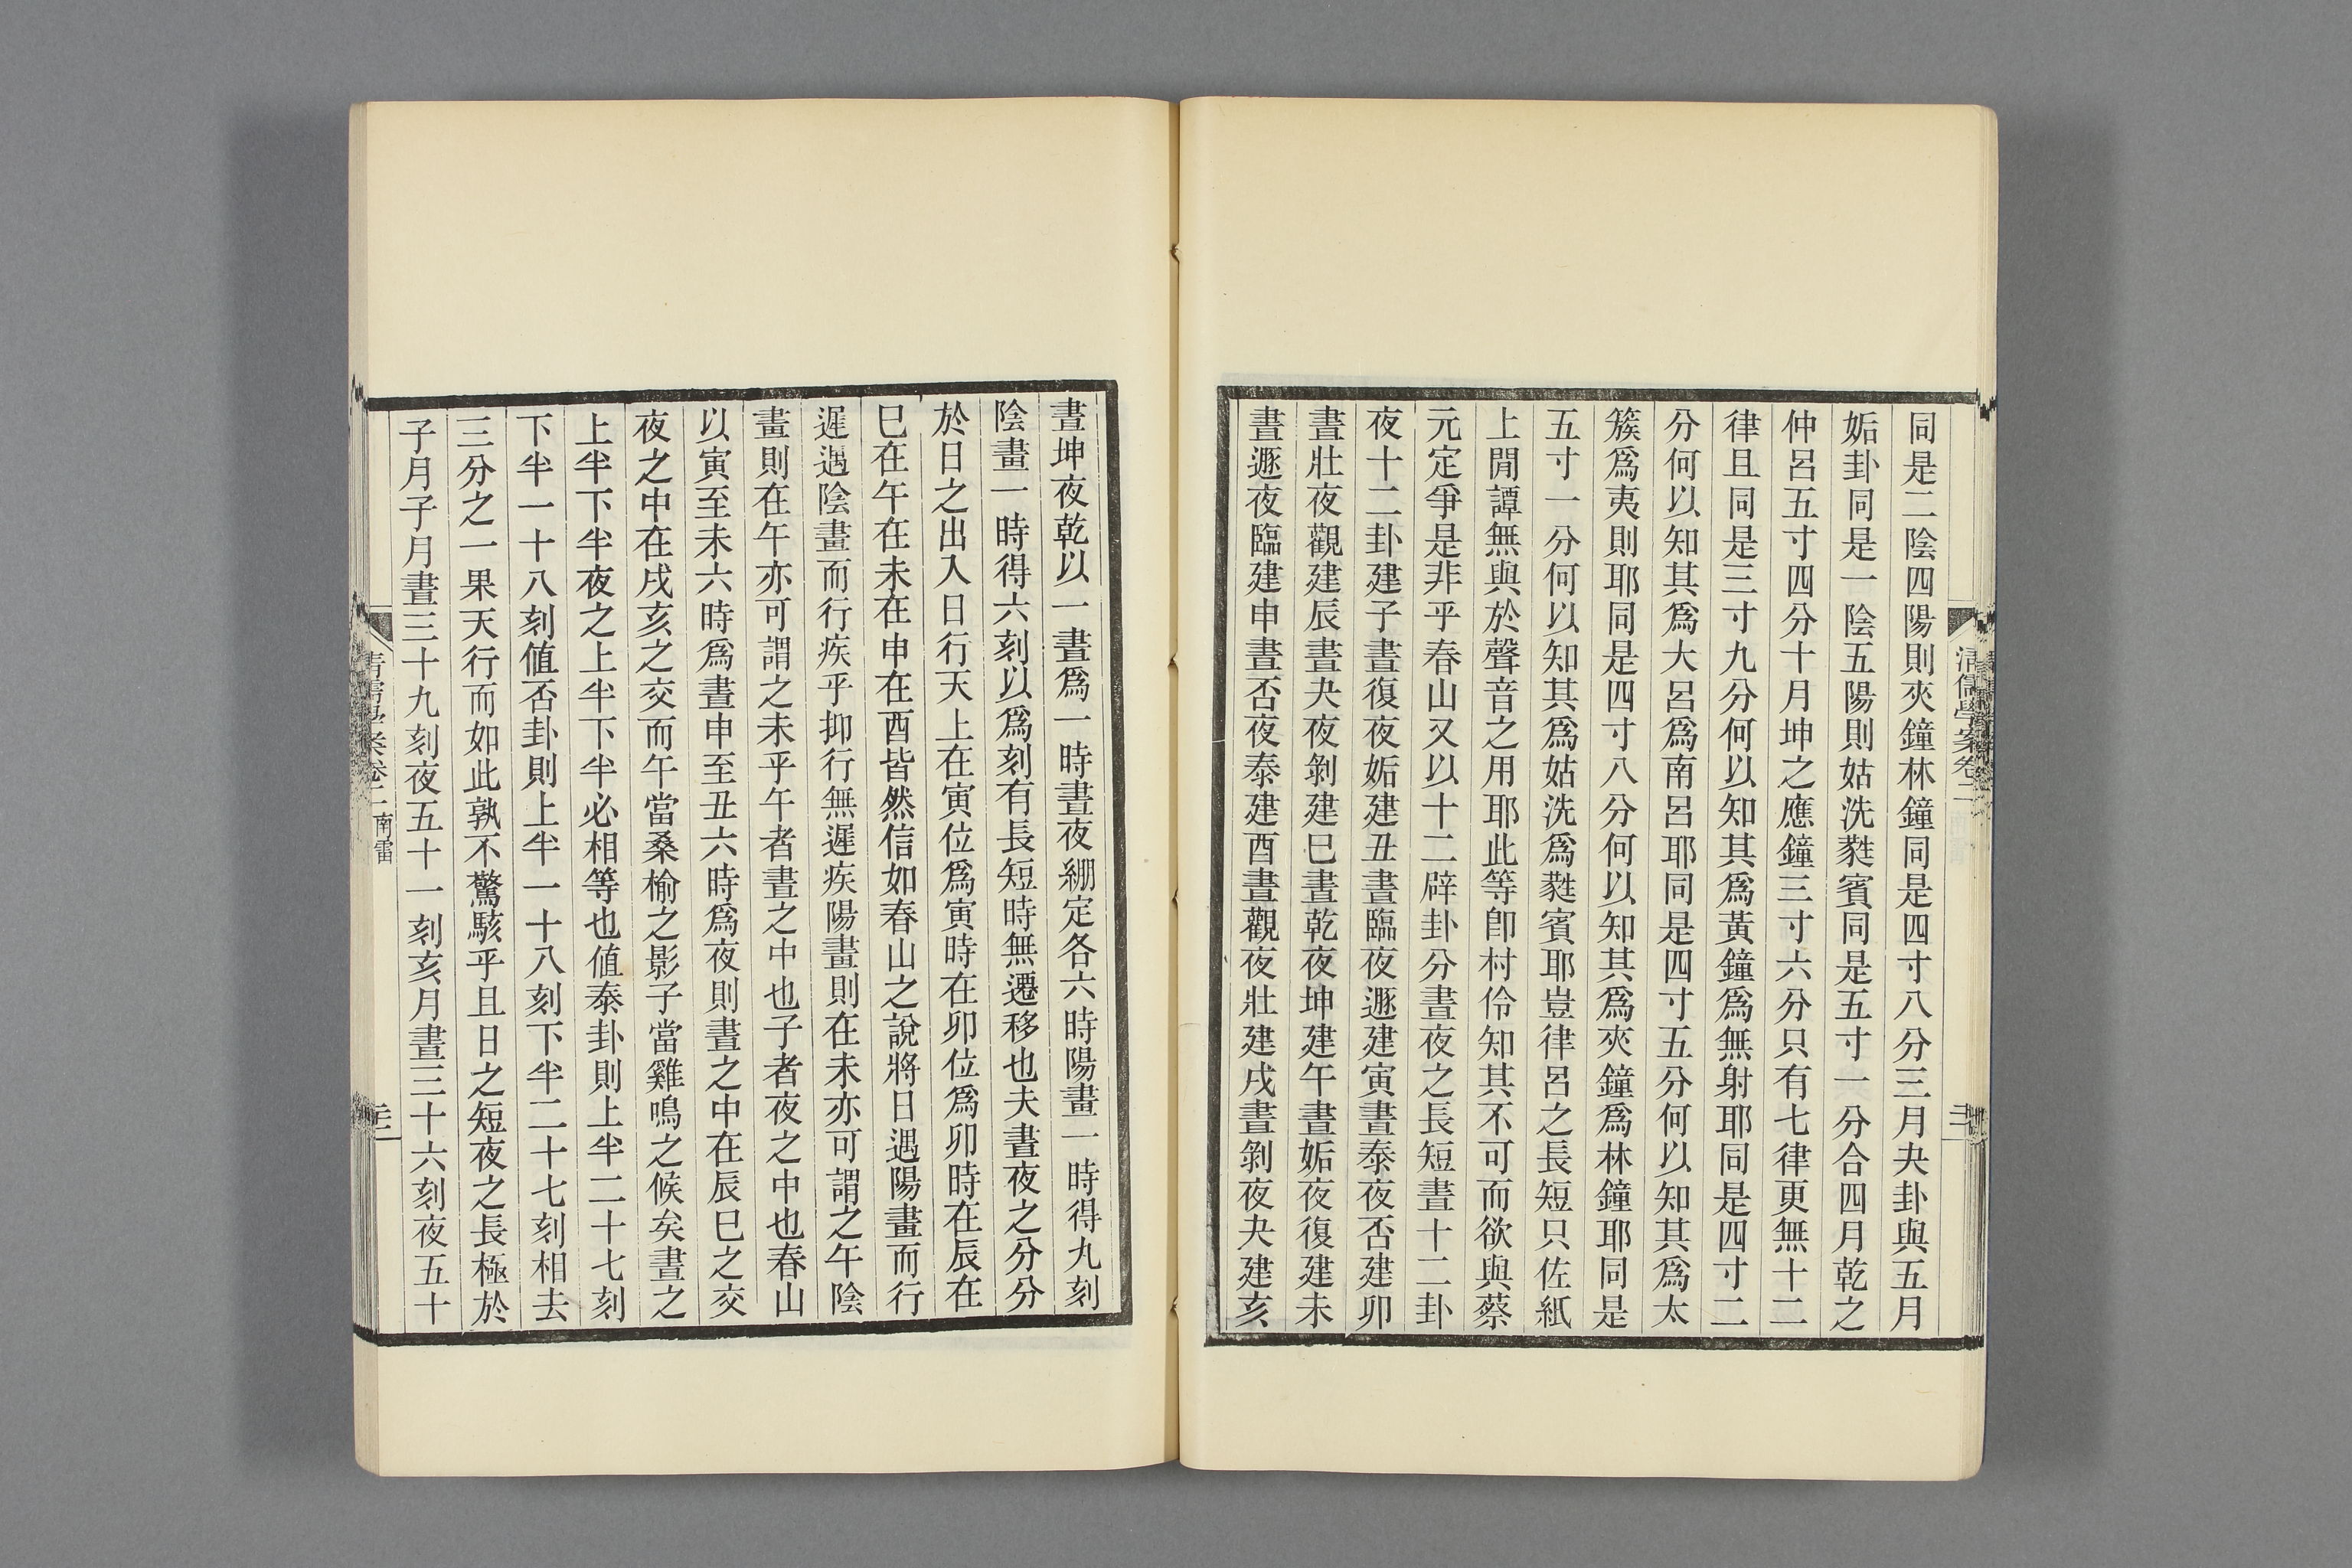 清儒學案卷二
同是二陰四陽則夾鐘林鐘同是四寸八分三月夬卦與五月
姤卦同是一陰五陽則姑洗蕤賓同是五寸一分合四月乾之
仲呂五寸四分十月坤之應鐘三寸六分只有七律更無十二
律且同是三寸九分何以知其爲黃鐘爲無射耶同是四寸二
分何以知其爲大呂爲南呂耶同是四寸五分何以知其爲太
簇爲夷則耶同是四寸八分何以知其爲夾鐘爲林鐘耶同是
五寸一分何以知其爲姑洗爲蕤賓耶豈律呂之長短只佐紙
上閒譚無與於聲音之用耶此等卽村伶知其不可而欲與蔡
元定爭是非乎春山又以十二辟卦分晝夜之長短晝十二卦
夜十二卦建子晝復夜姤建丑晝臨夜遯建寅晝泰夜否建卯
晝壯夜觀建辰晝夬夜剝建巳晝乾夜坤建午晝姤夜復建未
晝遯夜臨建申晝否夜泰建酉晝觀夜壯建戌晝剝夜夬建亥
晝坤夜乾以一晝爲一時晝夜綳定各六時陽畫一時得九刻
陰畫一時得六刻以爲刻有長短時無遷移也夫晝夜之分分
於日之出入日行天上在寅位爲寅時在卯位爲卯時在辰在
巳在午在未在申在酉皆然信如春山之說將日遇陽畫而行
遲遇陰畫而行疾乎抑行無遲疾陽畫則在未亦可謂之午陰
畫則在午亦可謂之未乎午者晝之中也子者夜之中也春山
以寅至未六時爲晝申至丑六時爲夜則晝之中在辰巳之交
夜之中在戌亥之交而午當桑榆之影子當雞鳴之候矣晝之
上半下半夜之上半下半必相等也値泰卦則上半二十七刻
下半一十八刻値否卦則上半一十八刻下半二十七刻相去
三分之一果天行而如此孰不驚駭乎且日之短夜之長極於
子月子月晝三十九刻夜五十一刻亥月晝三十六刻夜五十
南雷